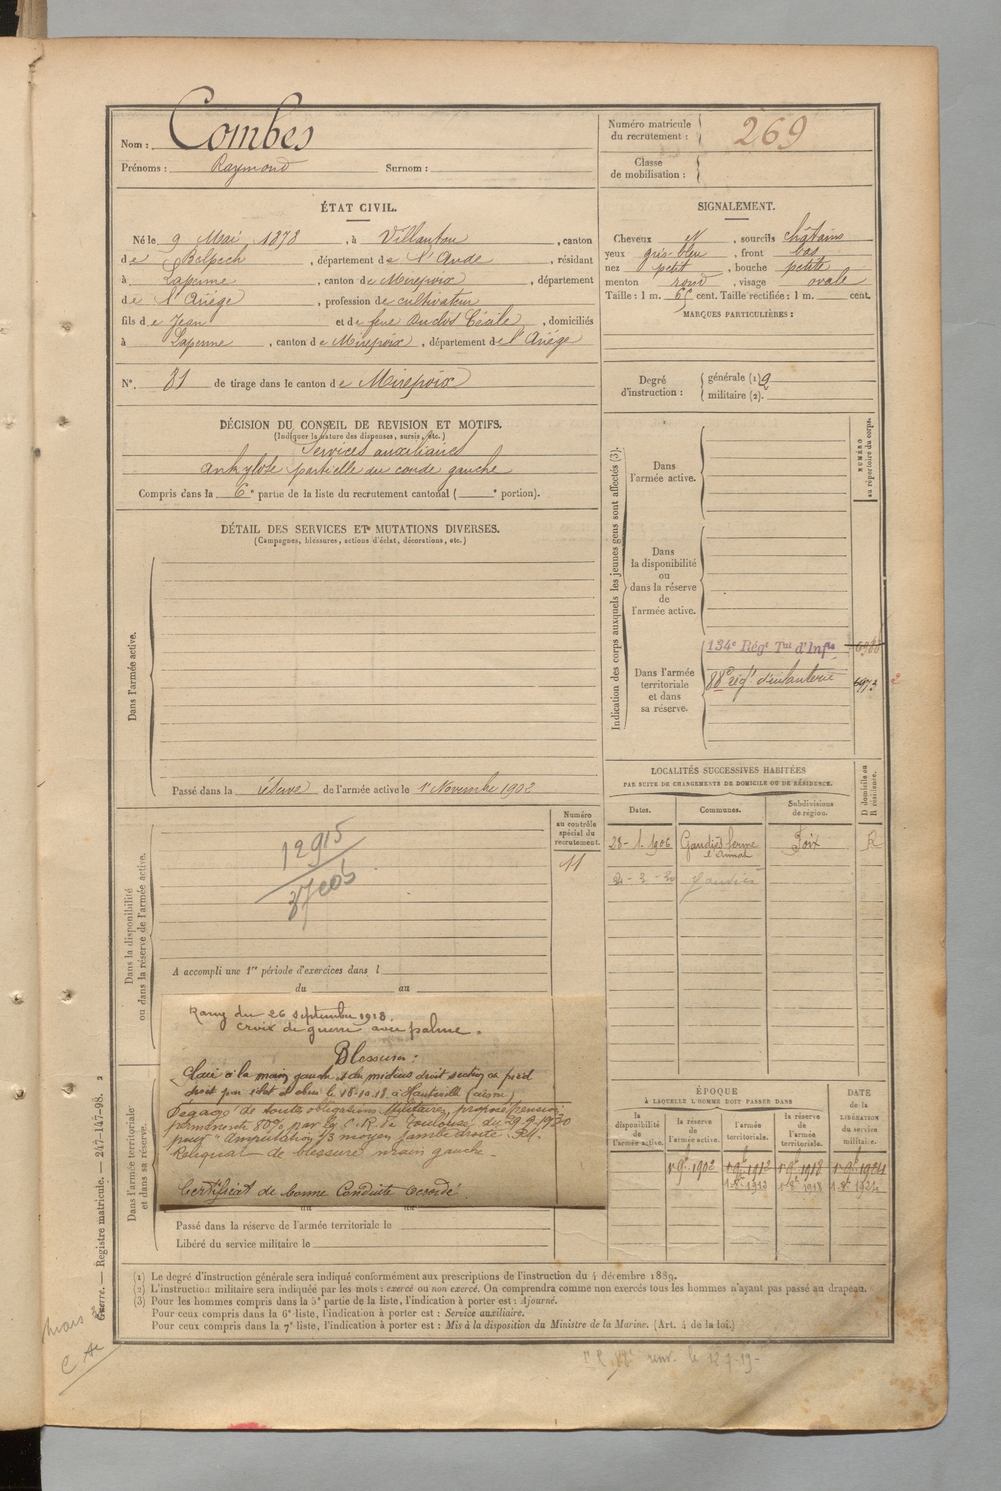 Nom : Combes
Prénoms : Raymond Surnom :
Numéro matricule du recrutement : 269
Classe de mobilisation :
ÉTAT CIVIL.
Né le 9 Mai 1878, à Villautou, canton
de Belpech, département de l'Aude, résidant
à Lapenne, canton de Mirepoix, département
de l'Ariége, profession de cultivateur
fils de Jean et de feue Duclos Cécile, domiciliés
à Lapenne, canton de Mirepoix, département de l'Ariége
N° 31 de tirage dans le canton de Mirepoix
SIGNALEMENT.
Cheveux N, sourcils châtains
yeux gris-bleu, front bas
nez petit, bouche petite
menton rond, visage ovale
Taille : 1 m. 65 cent. Taille rectifiée : 1 m. cent.
MARQUES PARTICULIÈRES :
Degré d'instruction : générale (1) 2
militaire (2).
DÉCISION DU CONSEIL DE REVISION ET MOTIFS.
(Indiquer la nature des dispenses, sursis, etc.)
Services auxiliaires
Ankylose partielle du coude gauche
Compris dans la 6e partie de la liste du recrutement cantonal ( e portion).
DÉTAIL DES SERVICES ET MUTATIONS DIVERSES.
(Campagnes, blessures, actions d'éclat, décorations, etc.)
Dans l'armée active.
Passé dans la réserve de l'armée active le 1er Novembre 1902
Indication des corps auxquels les jeunes gens sont affectés (3).
NUMÉRO au répertoire du corps.
Dans l'armée active.
Dans la disponibilité ou dans la réserve de l'armée active.
Dans l'armée territoriale et dans sa réserve.
134e Régt Tal d'Infie
88e régt d'infanterie
LOCALITÉS SUCCESSIVES HABITÉES
PAR SUITE DE CHANGEMENTS DE DOMICILE OU DE RÉSIDENCE.
Dates. Communes. Subdivisions de région. D domicile ou R résidence.
28-1-1906 Gaudiès ferme Foix R
Gaudiès
Dans la disponibilité ou dans la réserve de l'armée active.
Numéro au contrôle spécial du recrutement.
11
12915
A accompli une 1re période d'exercices dans l
du au
Rang du 26 septembre 1918.
Croix de guerre avec palme.
Blessures :
Plaie à la main gauche et du médius droit section du pied
droit par éclat d'obus le 18-10-18 à Hauteville (aisne)
Dégagé de toutes obligations Militaires, proposé pension
permanente 80% par la C.R. de Toulouse du 29-9-1920
pour "Amputation 1/3 moyen jambe droite.
Reliquat de blessure main gauche-
Certificat de bonne Conduite accordé.
Dans l'armée territoriale et dans sa réserve.
Passé dans la réserve de l'armée territoriale le
Libéré du service militaire le
ÉPOQUE
À LAQUELLE L'HOMME DOIT PASSER DANS
DATE de la LIBÉRATION du service militaire.
la disponibilité de l'armée active. la réserve de l'armée active. l'armée territoriale. la réserve de l'armée territoriale.
(1) Le degré d'instruction générale sera indiqué conformément aux prescriptions de l'instruction du 4 décembre 1889.
(2) L'instruction militaire sera indiquée par les mots : exercé ou non exercé. On comprendra comme non exercés tous les hommes n'ayant pas passé au drapeau.
(3) Pour les hommes compris dans la 5e partie de la liste, l'indication à porter est : Ajourné.
Pour ceux compris dans la 6e liste, l'indication à porter est : Service auxiliaire.
Pour ceux compris dans la 7e liste, l'indication à porter est : Mis à la disposition du Ministre de la Marine. (Art. 4 de la loi.)
Guerre. — Registre matricule. — 247-147-98.